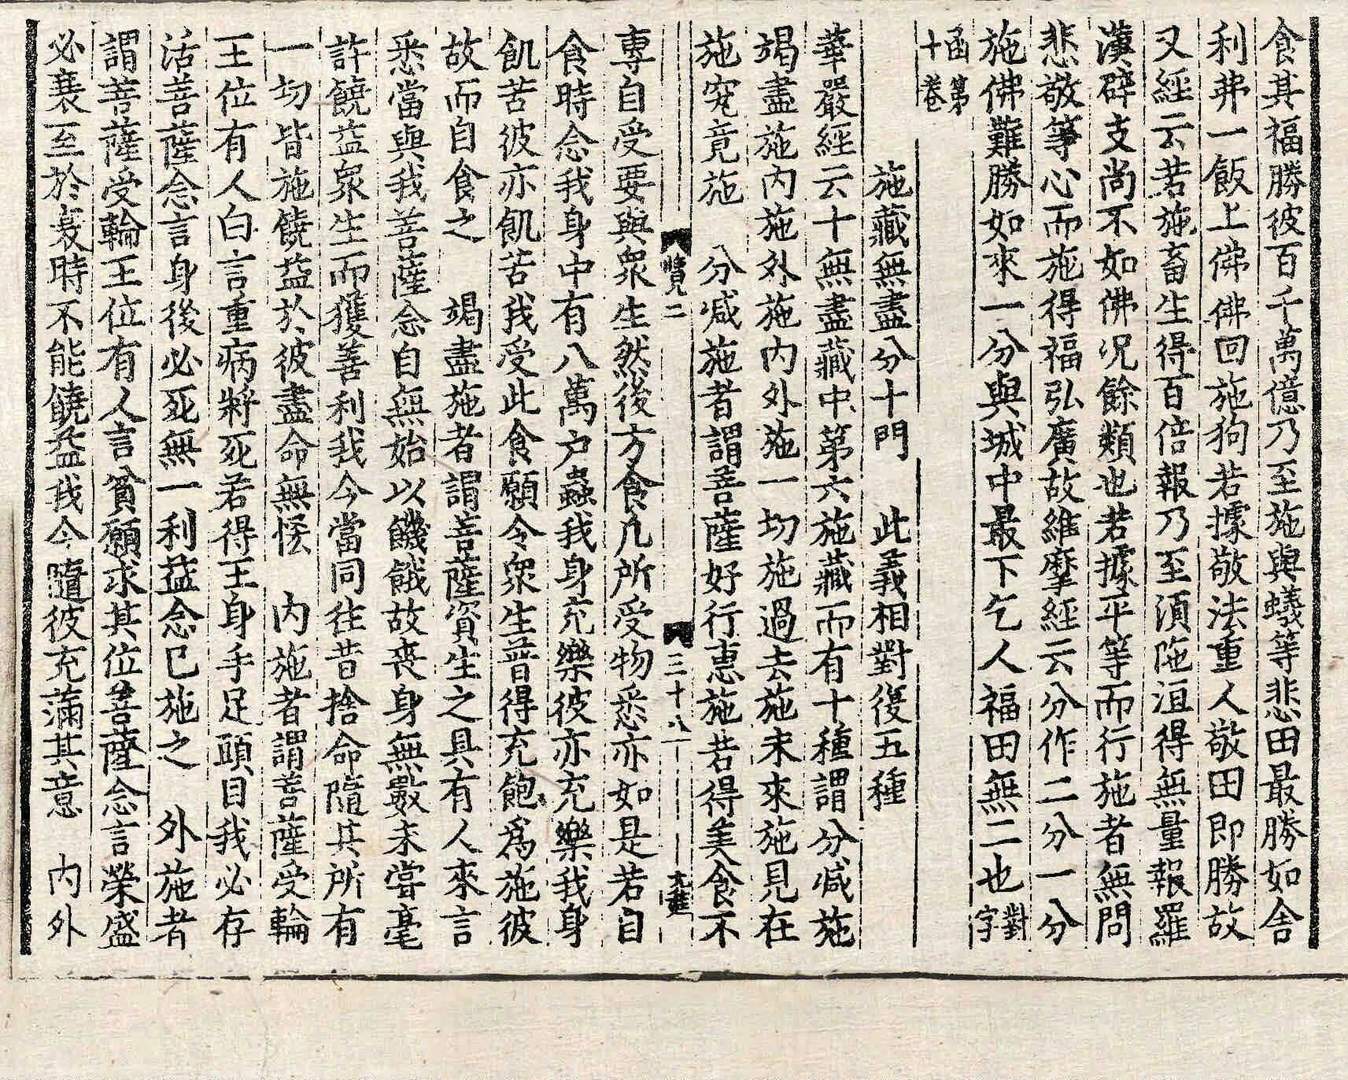 食其福勝彼百千萬億乃至施與蟻等悲田最勝如舍
利弗一飯上佛佛回施狗若據敬法重人敬田即勝故
又經云若施畜生得百倍報乃至須陁洹得無量報羅
漢辟支尚不如佛况餘類也若據平等而行施者無問
悲敬等心而施得福弘廣故維摩經云分作二分一分
施佛難勝如來一分與城中最下乞人福田無二也對字
函第十卷
施藏無盡分十門 此義相對復五種
華嚴經云十無盡藏中第六施藏而有十種謂分減施
竭盡施內施外施內外施一切施過去施未來施見在
施究竟施 分減施者謂菩薩好行惠施若得美食不
覽二 三十八
專自受要與眾生然後方食凡所受物悉亦如是若自
食時念我身中有八萬户蟲我身充樂彼亦充樂我身
飢苦彼亦飢苦我受此食願令眾生普得充飽爲施彼
故而自食之 竭盡施者謂菩薩資生之具有人來言
悉當與我菩薩念自無始以饑餓故喪身無數未嘗毫
許饒益眾生而獲善利我今當同往昔捨命隨其所有
一切皆施饒益於彼盡命無恡 內施者謂菩薩受輪
王位有人白言重病將死若得王身手足頭目我必存
活菩薩念言身後必死無一利益念已施之 外施者
謂菩薩受輪王位有人言貧願求其位菩薩念言榮盛
必衰至於衰時不能饒益我今隨彼充滿其意 內外